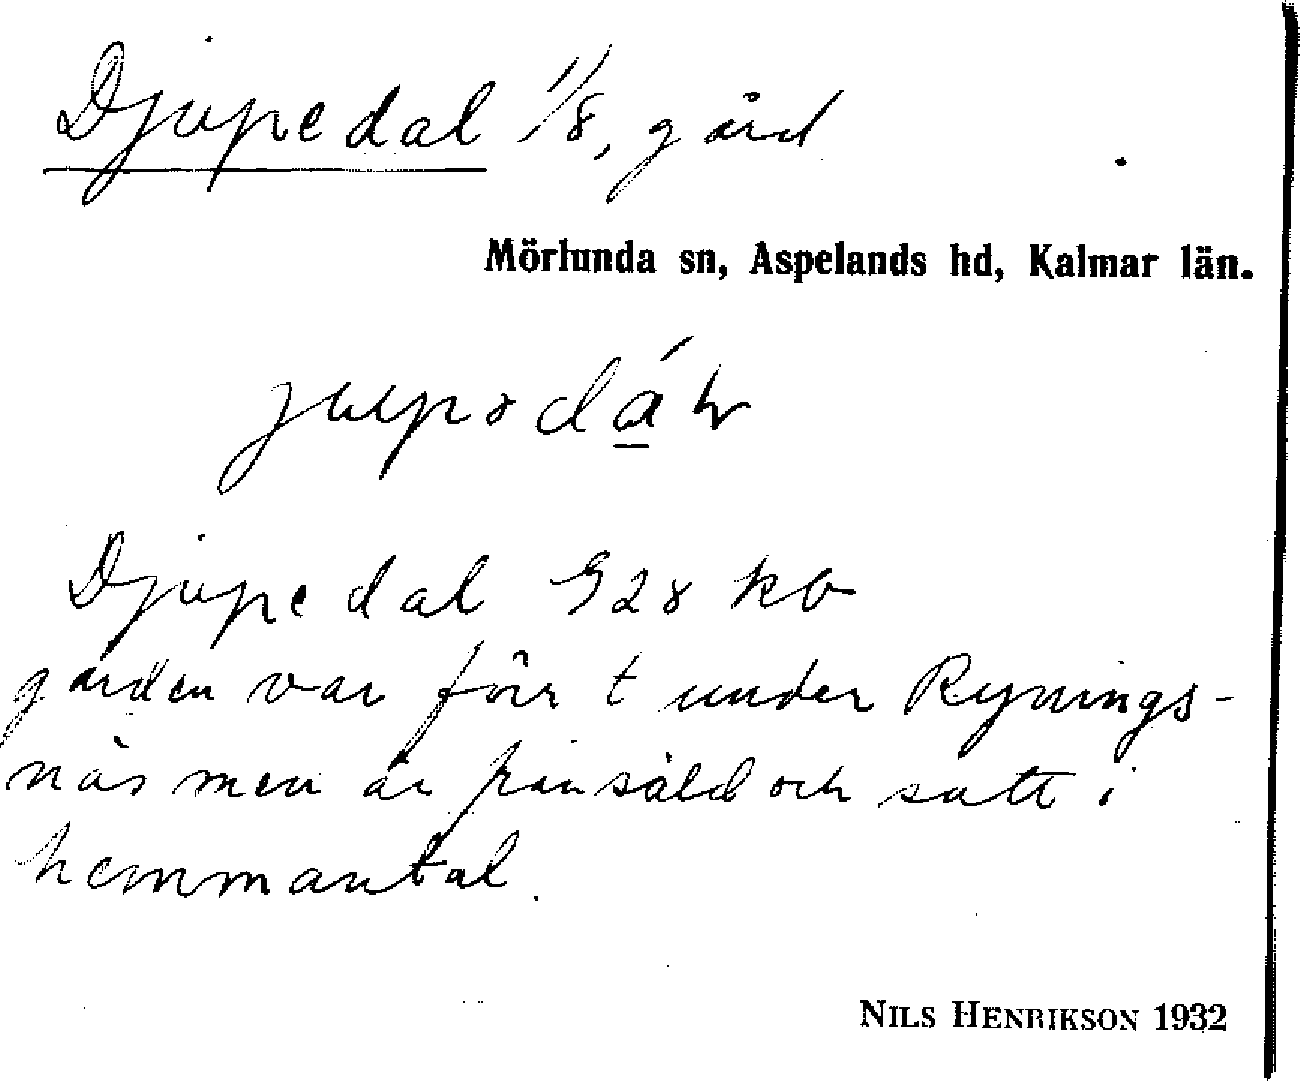 Djupedal 1/8, gård
Mörlunda sn, Aspelands hd, Kalmar län.
Djupedal 928 kb
gården var förr t under Rynings-
näs men är frånsåld och satt i
hemmantal.
NILS HENRIKSON 1932